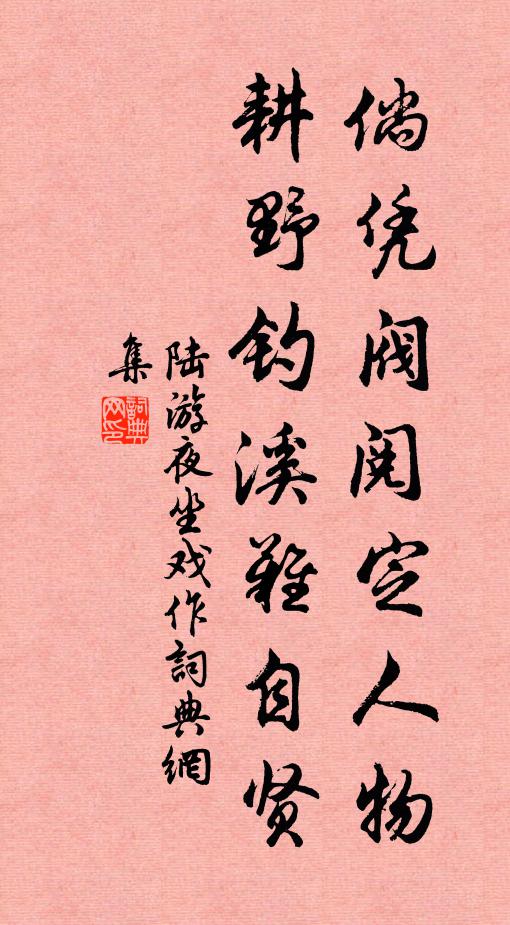 倘凭阀阅定人物
耕野钓溪难自贤
陆游夜坐戏作詞典網
集
詞典
网印